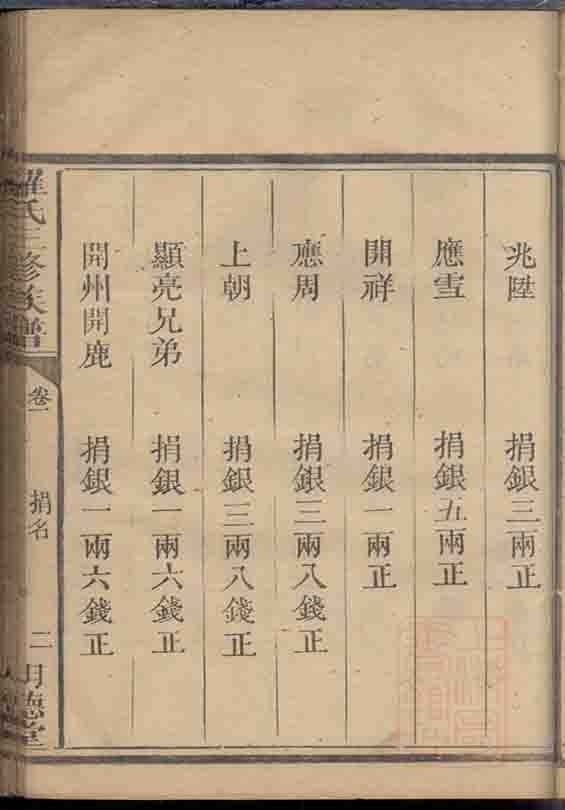 兆陞 捐銀三兩正
應雪 捐銀五兩正
開祥 捐銀一兩正
應周 捐銀三兩八錢正
上朝 捐銀三兩八錢正
顯亮兄弟 捐銀一兩六錢正
開州開鹿 捐銀一兩六錢正
羅氏三修族譜 卷一 捐名 二 明德堂